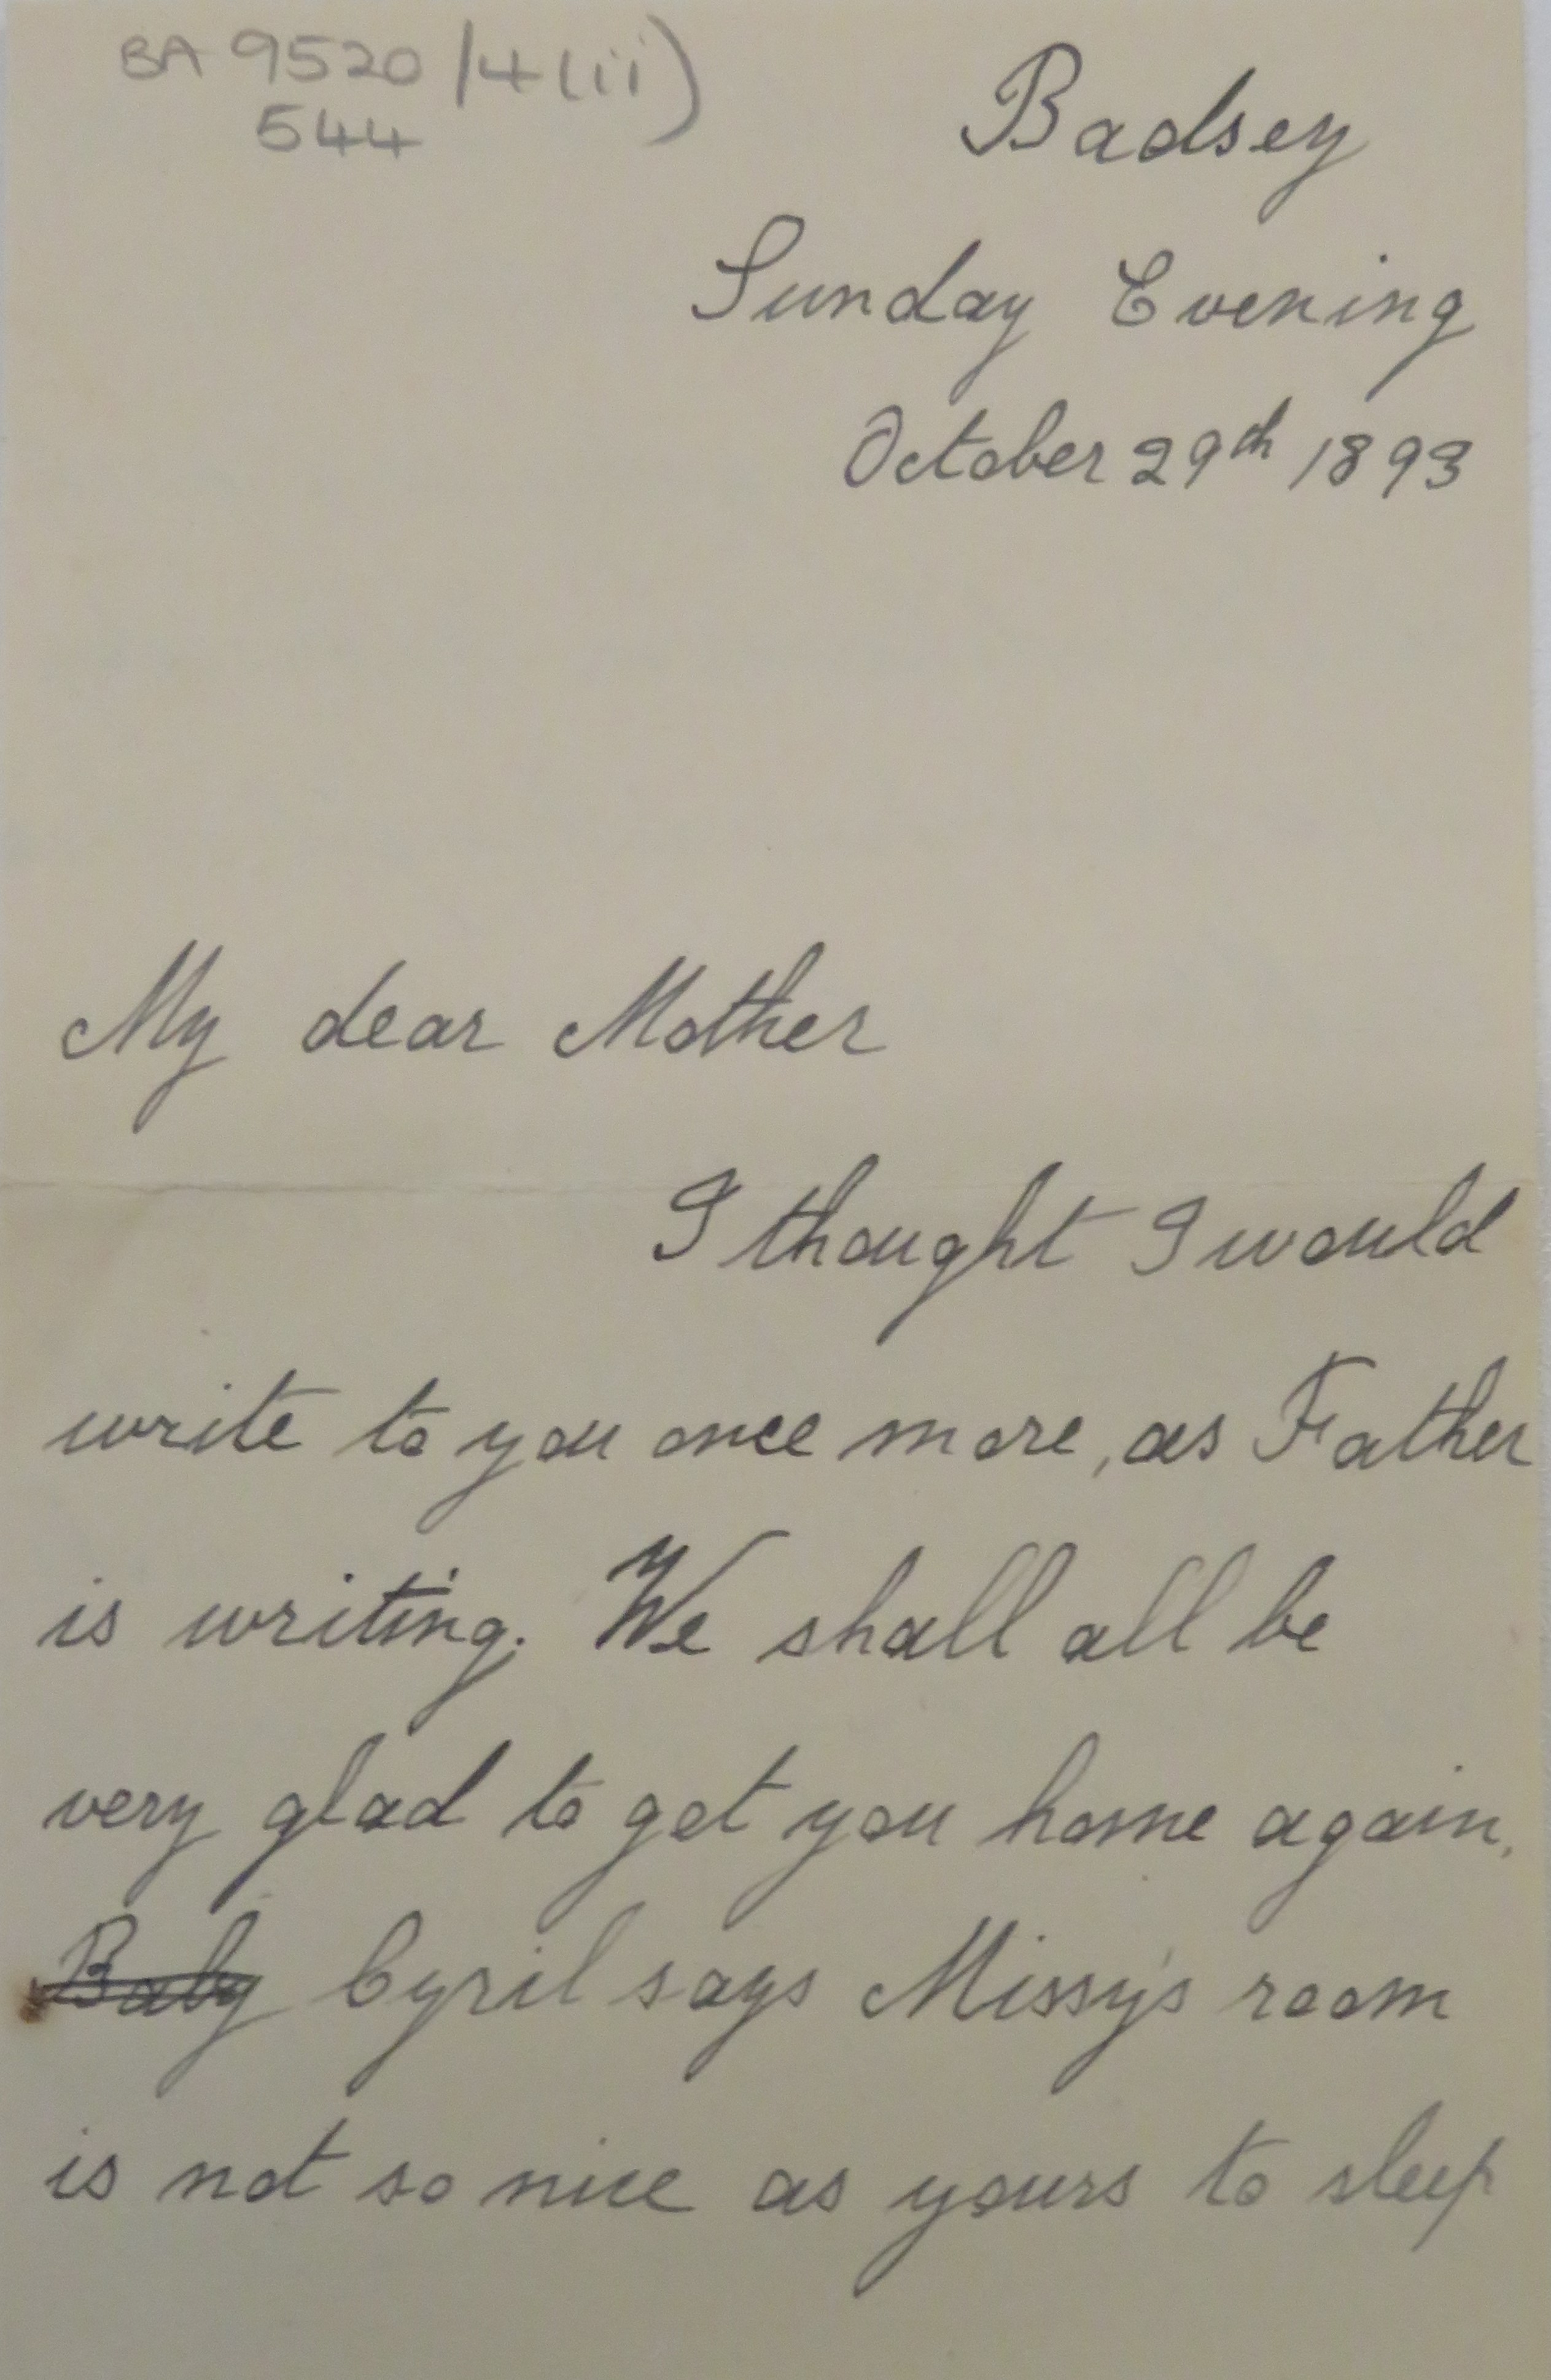 BA 9520/4(ii)
544
Badsey
Sunday Evening
October 29th 1893
My dear Mother
I thought I would
write to you once more, as Father
is writing. We shall all be
very glad to get you home again.
Baby Cyril says Missy's room
is not so nice as yours to sleep